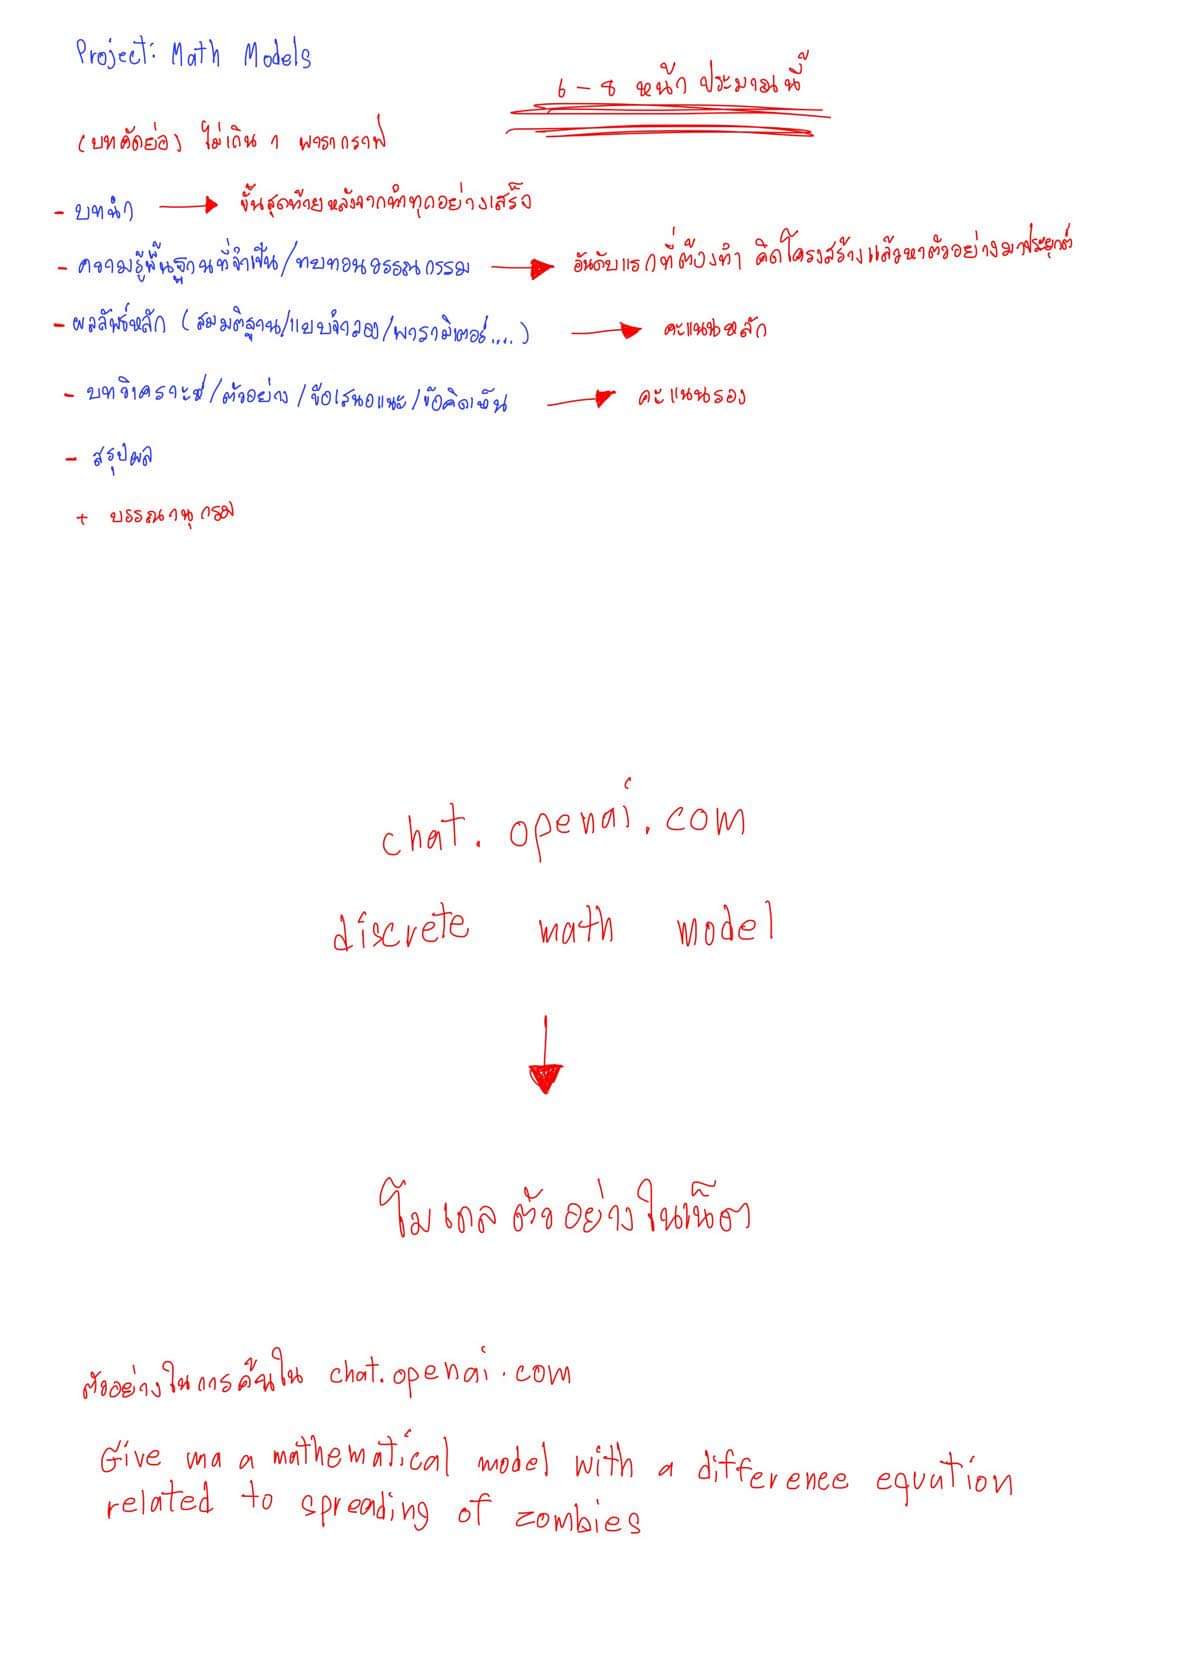 Project: Math Models
6 - 8 หน้า ประมาณนี้
(บทคัดย่อ) ไม่เกิน 1 พารากราฟ
- บทนำ → ขั้นสุดท้ายหลังจากทำทุกอย่างเสร็จ
- ความรู้พื้นฐานที่จำเป็น/ทบทวนวรรณกรรม → อันดับแรกที่ต้องทำ คิดโครงสร้างแล้วหาตัวอย่างมาประยุกต์
- ผลลัพธ์หลัก (สมมติฐาน/แบบจำลอง/พารามิเตอร์....) → คะแนนหลัก
- บทวิเคราะห์/ตัวอย่าง/ข้อเสนอแนะ/ข้อคิดเห็น → คะแนนรอง
- สรุปผล
+ บรรณานุกรม
chat.openai.com
discrete math model
↓
โมเดลตัวอย่างในเน็ต
ตัวอย่างในการค้นใน chat.openai.com
Give ma a mathematical model with a difference equation
related to spreading of zombies